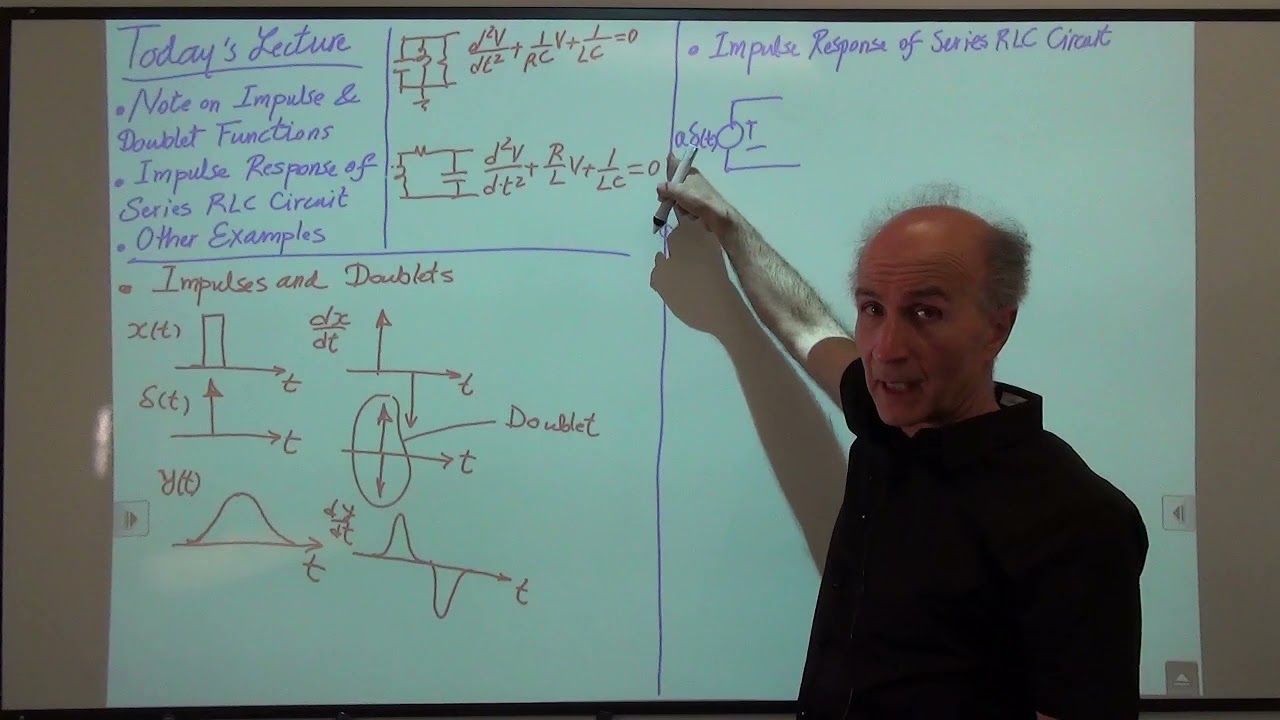 Today's Lecture
• Note on Impulse &
Doublet Functions
• Impulse Response of
Series RLC Circuit
• Other Examples
d²V/dt² + 1/RC V + 1/LC = 0
d²V/dt² + R/L V + 1/LC = 0
• Impulses and Doublets
x(t)
t
dx/dt
t
δ(t)
t
Doublet
t
y(t)
t
dy/dt
t
• Impulse Response of Series RLC Circuit
aδ(t)